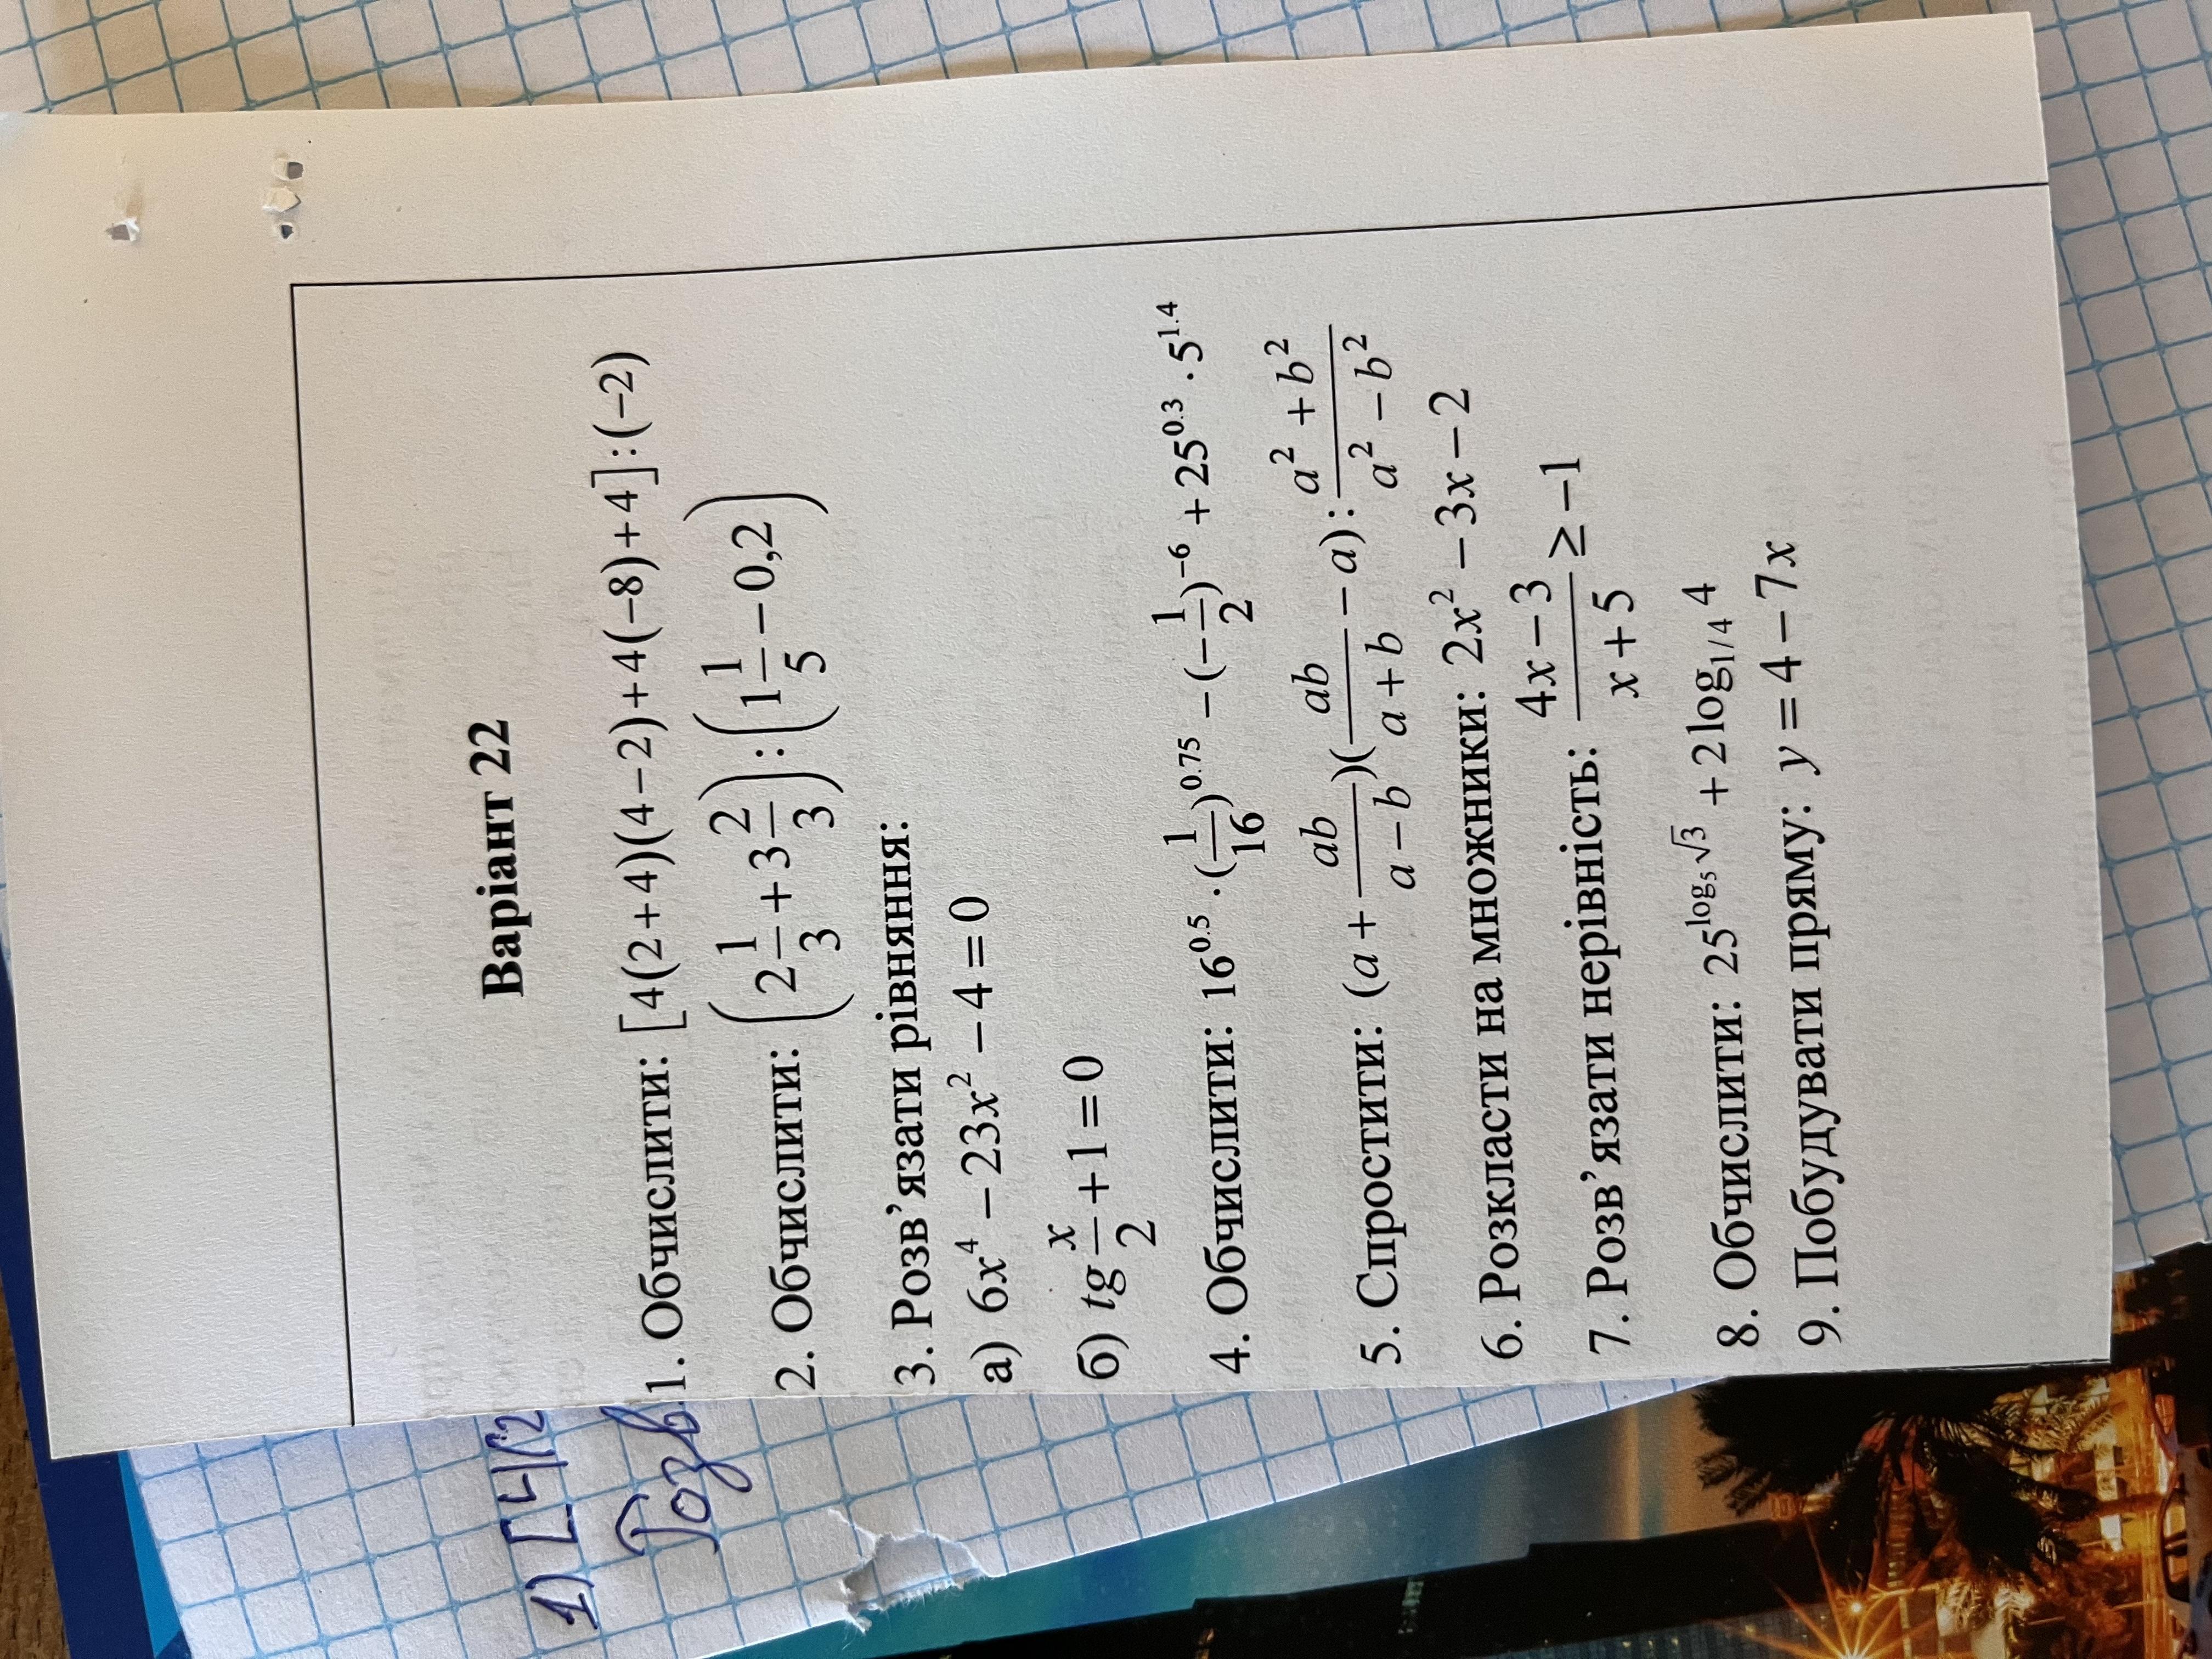 Варіант 22
1. Обчислити: [4(2+4)(4−2)+4(−8)+4]:(−2)
2. Обчислити: (2 1/3 + 3 2/3) : (1 1/5 − 0,2)
3. Розв’язати рівняння:
а) 6x⁴ − 23x² − 4 = 0
б) tg x/2 + 1 = 0
4. Обчислити: 16^0.5 · (1/16)^0.75 − (−1/2)^−6 + 25^0.3 · 5^1.4
5. Спростити: (a + ab/(a−b))(ab/(a+b) − a) : (a²+b²)/(a²−b²)
6. Розкласти на множники: 2x² − 3x − 2
7. Розв’язати нерівність: (4x−3)/(x+5) ≥ −1
8. Обчислити: 25^(log₅√3) + 2log_(1/4) 4
9. Побудувати пряму: y = 4 − 7x
1) [4(2
Розв